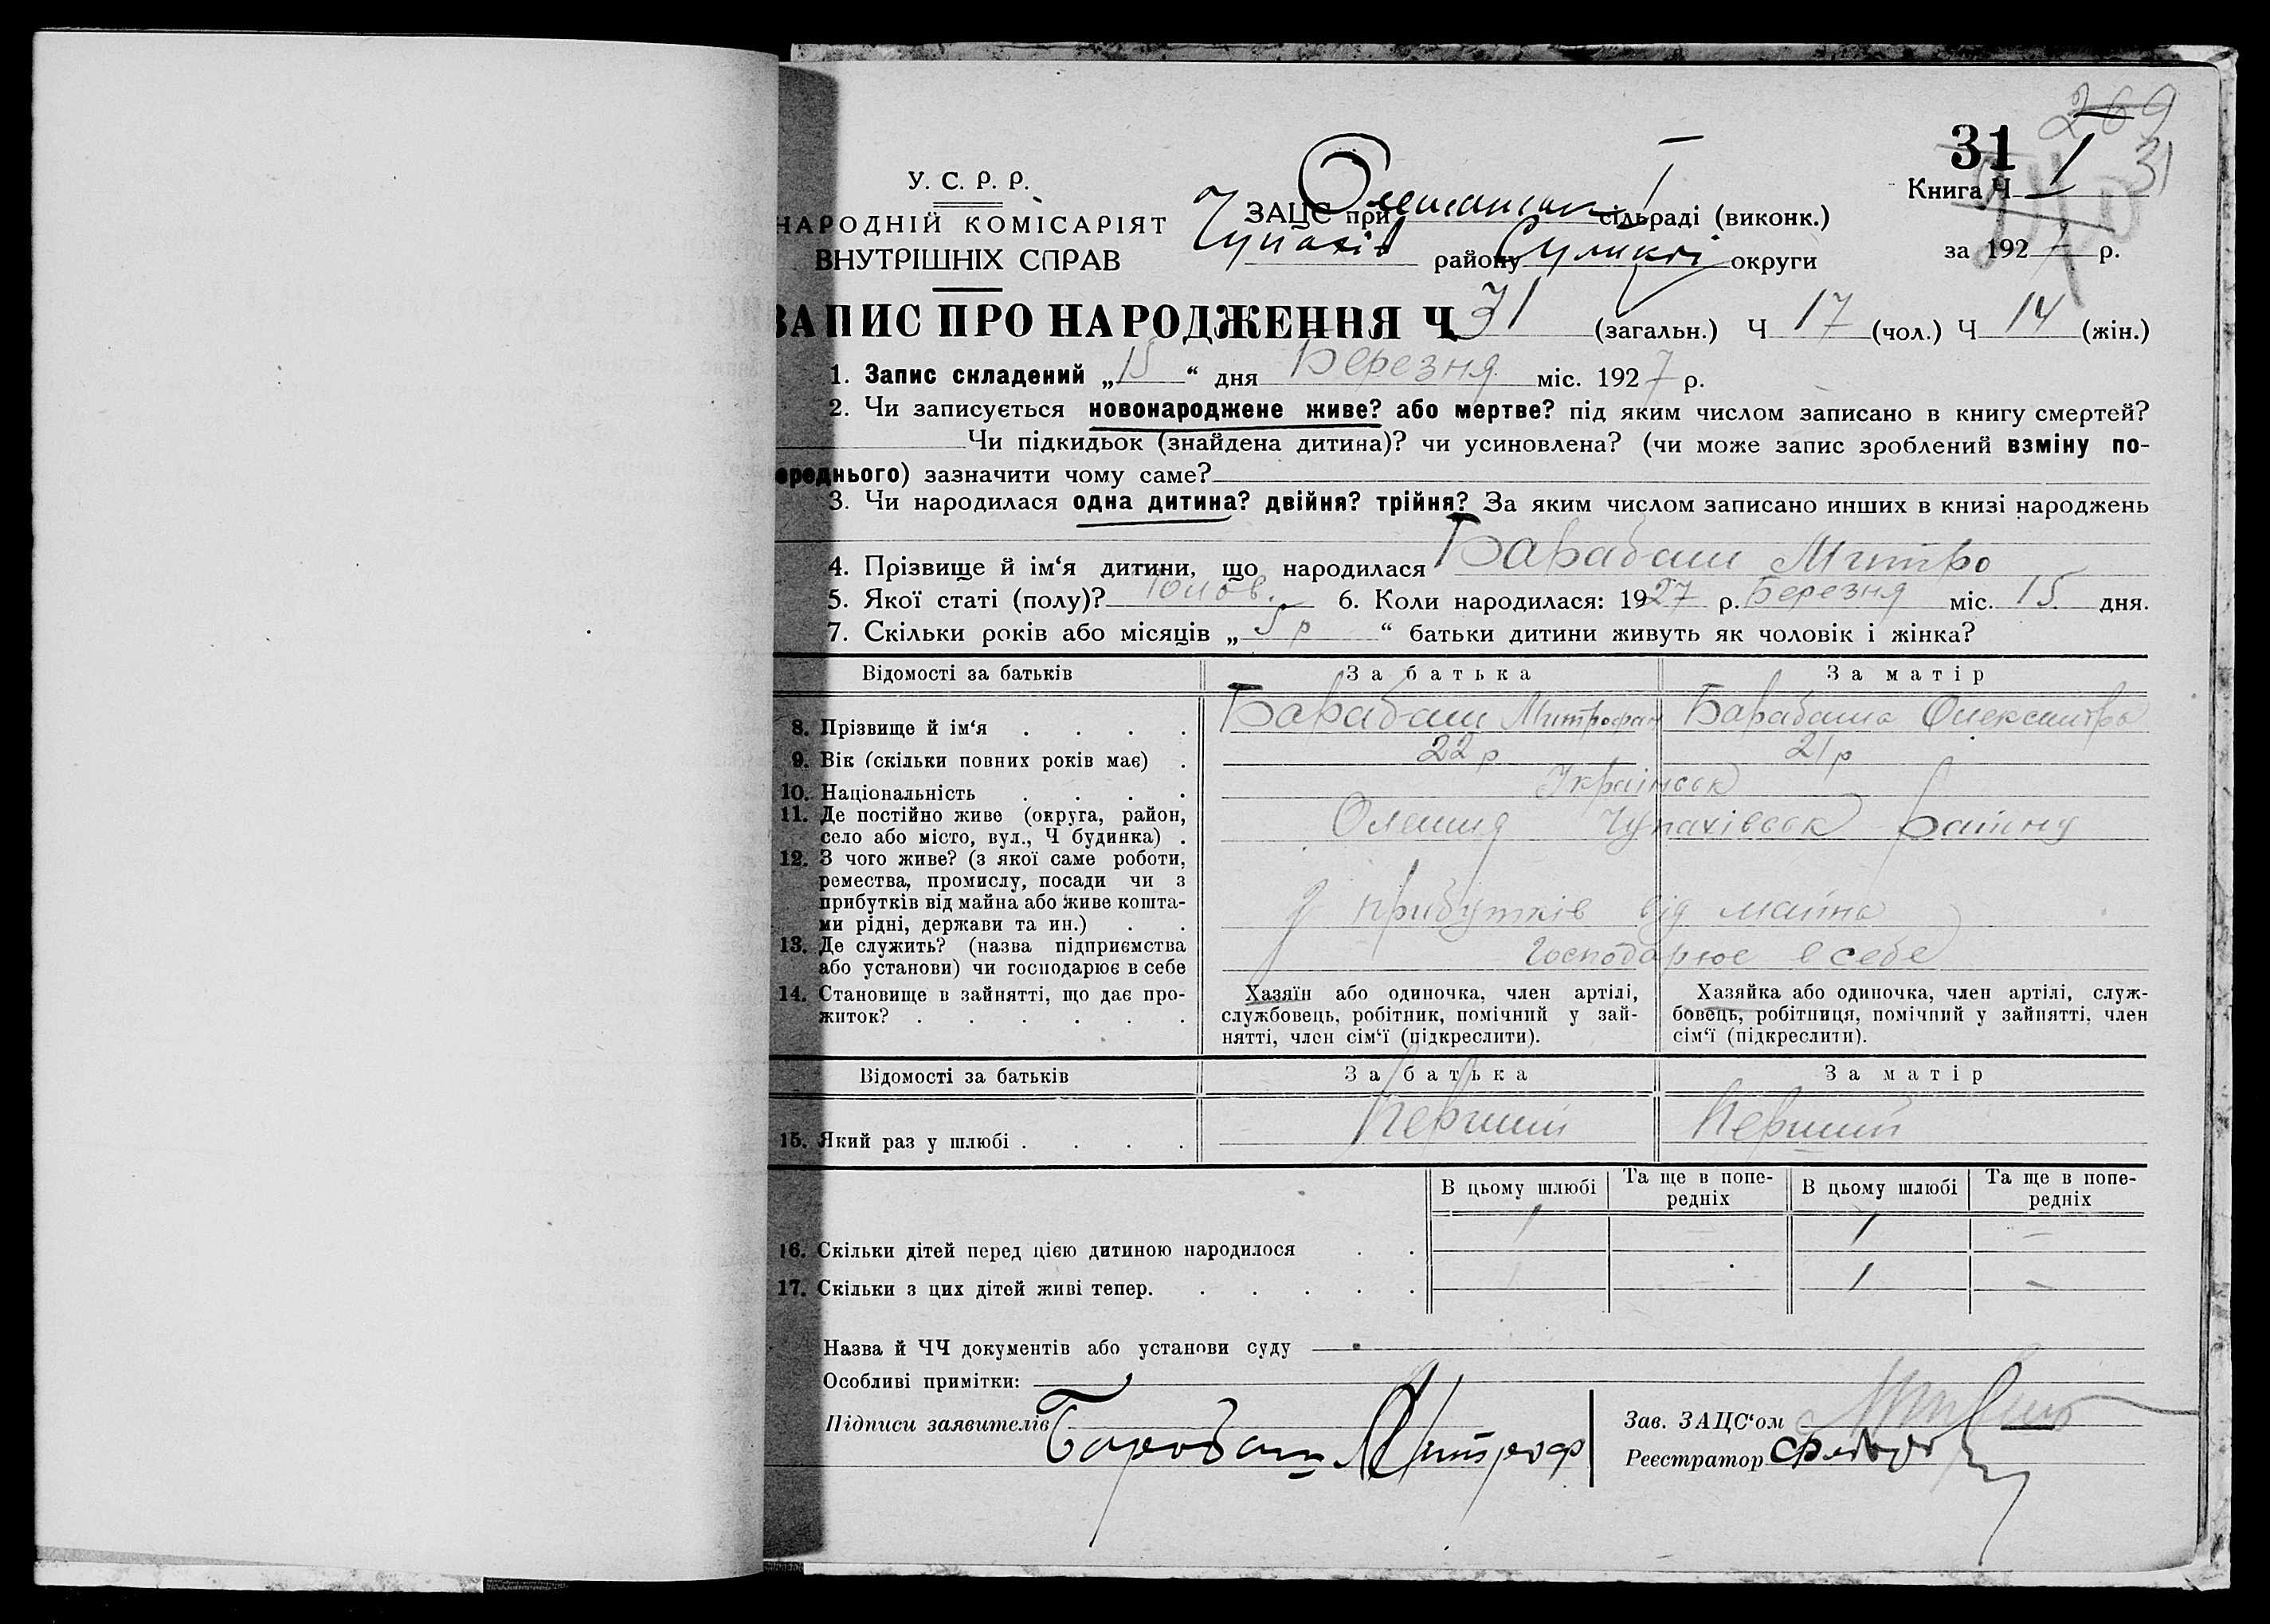 269
31
31
У. С. Р. Р.
НАРОДНІЙ КОМІСАРІЯТ
ВНУТРІШНІХ СПРАВ
ЗАЦС при сільраді (виконк.)
Чупахів району Сумської округи
Книга Ч I
за 1927 р.
ЗАПИС ПРО НАРОДЖЕННЯ Ч 31 (загальн.) Ч 17 (чол.) Ч 14 (жін.)
1. Запис складений „15“ дня Березня міс. 1927 р.
2. Чи записується новонароджене живе? або мертве? під яким числом записано в книгу смертей?
Чи підкидьок (знайдена дитина)? чи усиновлена? (чи може запис зроблений взміну по-
ереднього) зазначити чому саме?
3. Чи народилася одна дитина? двійня? трійня? За яким числом записано инших в книзі народжень
4. Прізвище й ім‘я дитини, що народилася Барабаш Митро
5. Якої статі (полу)? Чолов. 6. Коли народилася: 1927 р. Березня міс. 15 дня.
7. Скільки років або місяців „5 р“ батьки дитини живуть як чоловік і жінка?
Відомості за батьків За батька За матір
8. Прізвище й ім‘я Барабаш Митрофан Барабаша Олександра
9. Вік (скільки повних років має) 22 р 21 р
10. Національність Українськ
11. Де постійно живе (округа, район,
село або місто, вул., Ч будинка) Олешня Чупахівськ району
12. З чого живе? (з якої саме роботи,
ремества, промислу, посади чи з
прибутків від майна або живе кошта-
ми рідні, держави та ин.) З прибутків від майна
13. Де служить? (назва підприємства
або установи) чи господарює в себе Господарює в себе
14. Становище в зайнятті, що дає про-
житок?
Хазяїн або одиночка, член артілі,
службовець, робітник, помічний у зай-
нятті, член сім‘ї (підкреслити).
Хазяйка або одиночка, член артілі, служ-
бовець, робітниця, помічний у зайнятті, член
сім‘ї (підкреслити).
Відомості за батьків За батька За матір
15. Який раз у шлюбі Перший Перший
В цьому шлюбі Та ще в попе-
редніх В цьому шлюбі Та ще в попе-
редніх
16. Скільки дітей перед цією дитиною народилося 1 — 1 —
17. Скільки з цих дітей живі тепер. 1 — 1 —
Назва й ЧЧ документів або установи суду
Особливі примітки:
Підписи заявителів Барабаш Митроф
Зав. ЗАЦС‘ом
Реєстратор